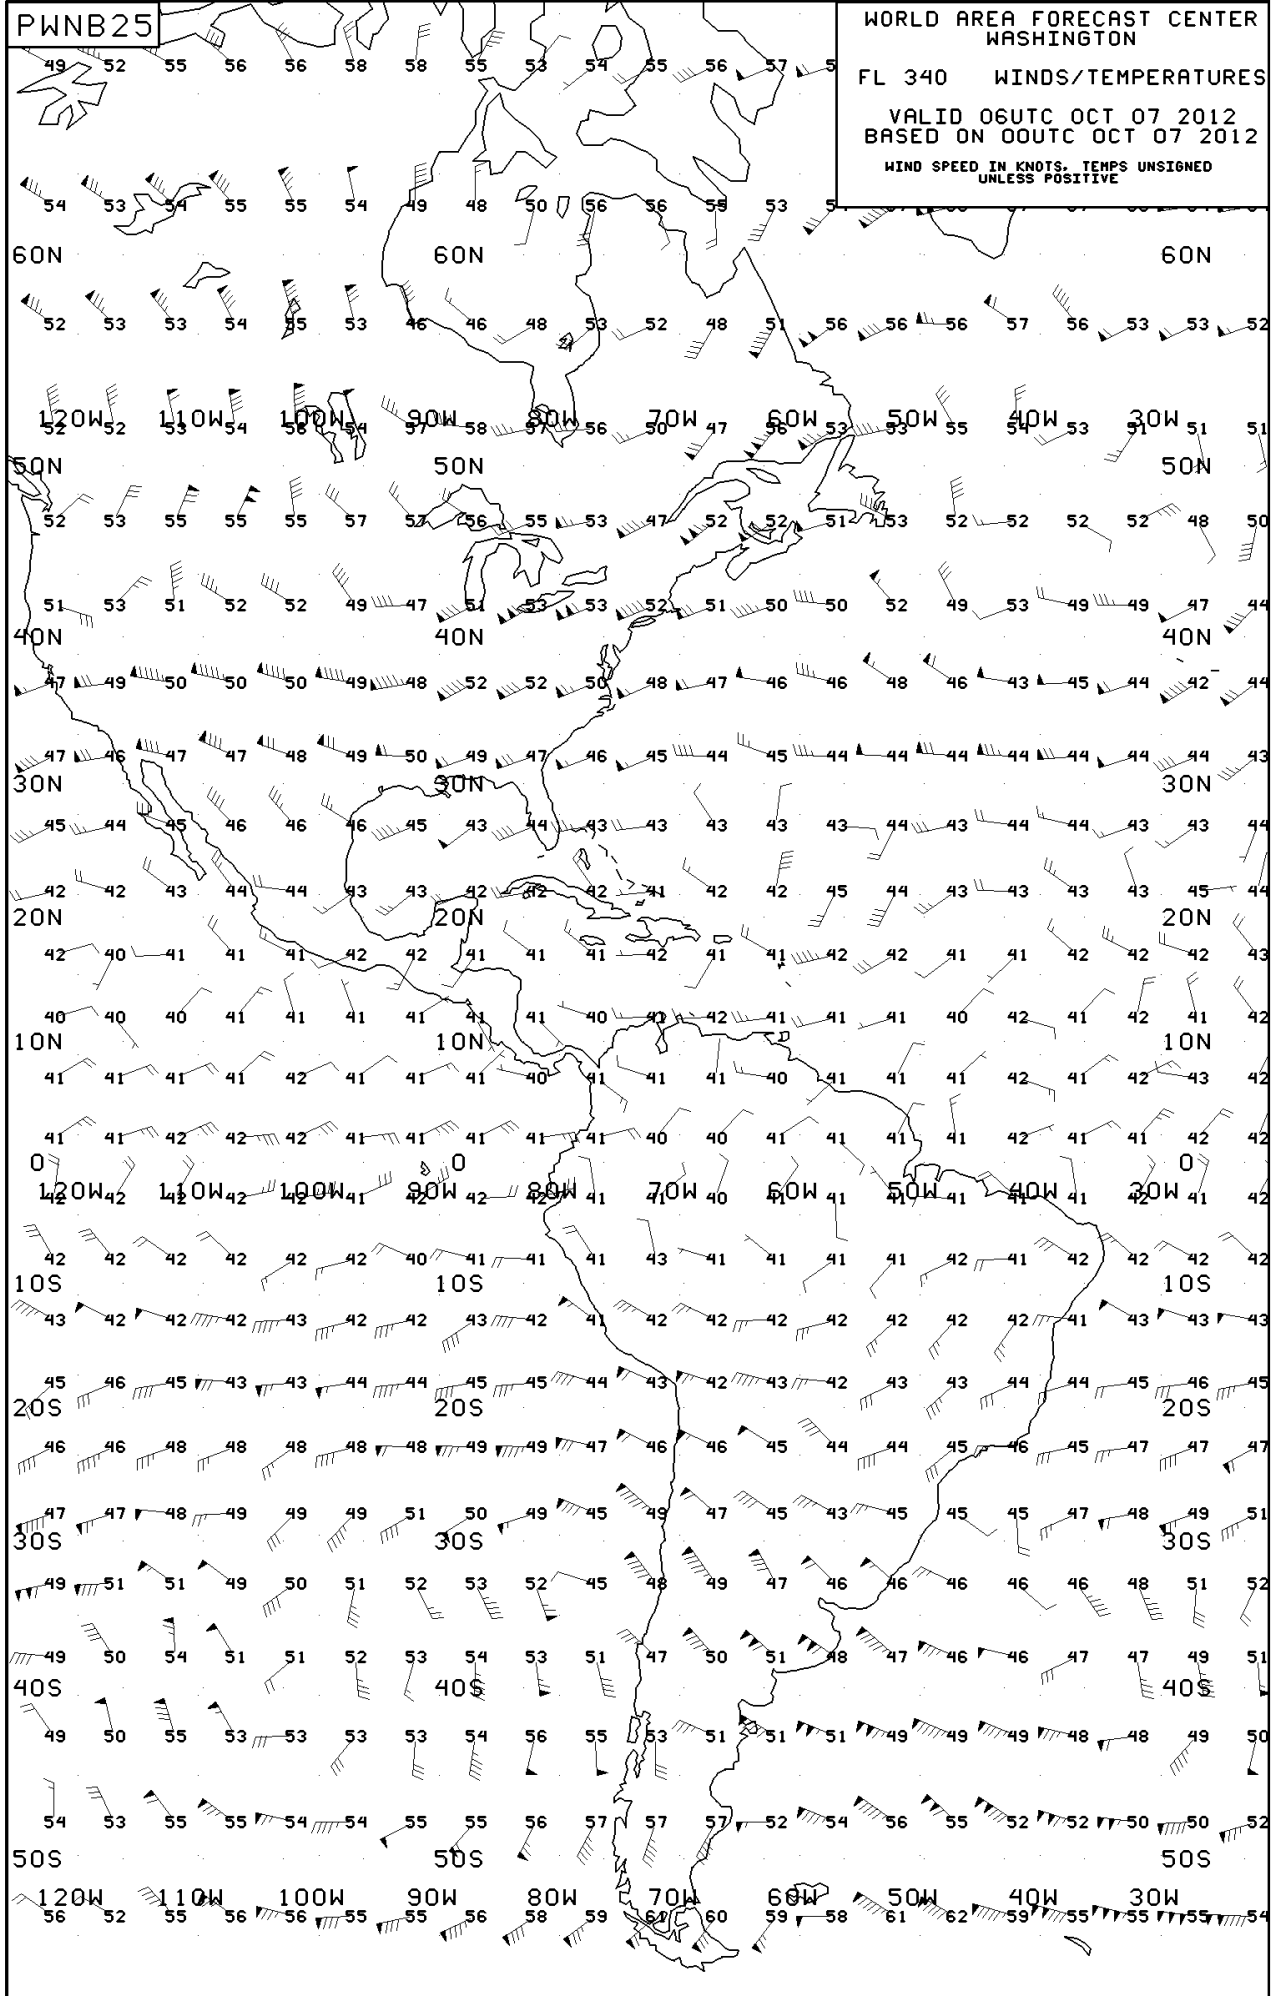 PWNB25
WORLD AREA FORECAST CENTER
WASHINGTON
FL 340 WINDS/TEMPERATURES
VALID 06UTC OCT 07 2012
BASED ON 00UTC OCT 07 2012
WIND SPEED IN KNOTS, TEMPS UNSIGNED
UNLESS POSITIVE
49 52 55 56 56 58 58 55 53 54 55 56 57
54 53 54 55 55 54 49 48 50 56 56 55 53
60N 60N 60N
52 53 53 54 55 53 46 46 48 53 52 48 51 56 56 56 57 56 53 53 52
120W 110W 100W 90W 80W 70W 60W 50W 40W 30W
52 52 53 54 56 54 57 58 57 56 50 47 56 53 53 55 54 53 51 51 51
50N 50N 50N
52 53 55 55 55 57 57 56 55 53 47 52 52 51 53 52 52 52 52 48 50
51 53 51 52 52 49 47 51 53 53 52 51 50 50 52 49 53 49 49 47 44
40N 40N 40N
47 49 50 50 50 49 48 52 52 50 48 47 46 46 48 46 43 45 44 42 44
47 46 47 47 48 49 50 49 47 46 45 44 45 44 44 44 44 44 44 44 43
30N 30N 30N
45 44 45 46 46 46 45 43 44 43 43 43 43 43 44 43 44 44 43 43 44
42 42 43 44 44 43 43 42 42 42 41 42 42 45 44 43 43 43 43 45 44
20N 20N 20N
42 40 41 41 41 42 42 41 41 41 42 41 41 42 42 41 41 42 42 42 43
40 40 40 41 41 41 41 41 41 40 41 42 41 41 41 40 42 41 42 41 42
10N 10N 10N
41 41 41 41 42 41 41 41 40 41 41 41 40 41 41 41 42 41 42 43 42
41 41 42 42 42 41 41 41 41 41 40 40 41 41 41 41 42 41 41 42 42
0 0 0
120W 110W 100W 90W 80W 70W 60W 50W 40W 30W
42 42 42 42 42 41 42 42 42 41 41 40 41 41 41 41 41 41 42 41 42
42 42 42 42 42 42 40 41 41 41 43 41 41 41 41 42 41 42 42 42 42
10S 10S 10S
43 42 42 42 43 42 42 43 42 41 42 42 42 42 42 42 42 41 43 43 43
45 46 45 43 43 44 44 45 45 44 43 42 43 42 43 43 44 44 45 46 45
20S 20S 20S
46 46 48 48 48 48 48 49 49 47 46 46 45 44 44 45 46 45 47 47 47
47 47 48 49 49 49 51 50 49 45 49 47 45 43 45 45 45 47 48 49 51
30S 30S 30S
49 51 51 49 50 51 52 53 52 45 48 49 47 46 46 46 46 46 48 51 52
49 50 54 51 51 52 53 54 53 51 47 50 51 48 47 46 46 47 47 49 51
40S 40S 40S
49 50 55 53 53 53 53 54 56 55 53 51 51 51 49 49 49 48 48 49 50
54 53 55 55 54 54 55 55 56 57 57 57 52 54 56 55 52 52 50 50 52
50S 50S 50S
120W 110W 100W 90W 80W 70W 60W 50W 40W 30W
56 52 55 56 56 55 55 56 58 59 61 60 59 58 61 62 59 55 55 55 54